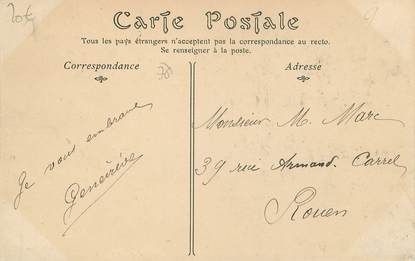 20€
Carte Postale
Tous les pays étrangers n'acceptent pas la correspondance au recto.
Se renseigner à la poste.
Correspondance
Adresse
Je vous embrasse
Geneviève
Monsieur M. Marc
39 rue Armand. Carrel
Rouen